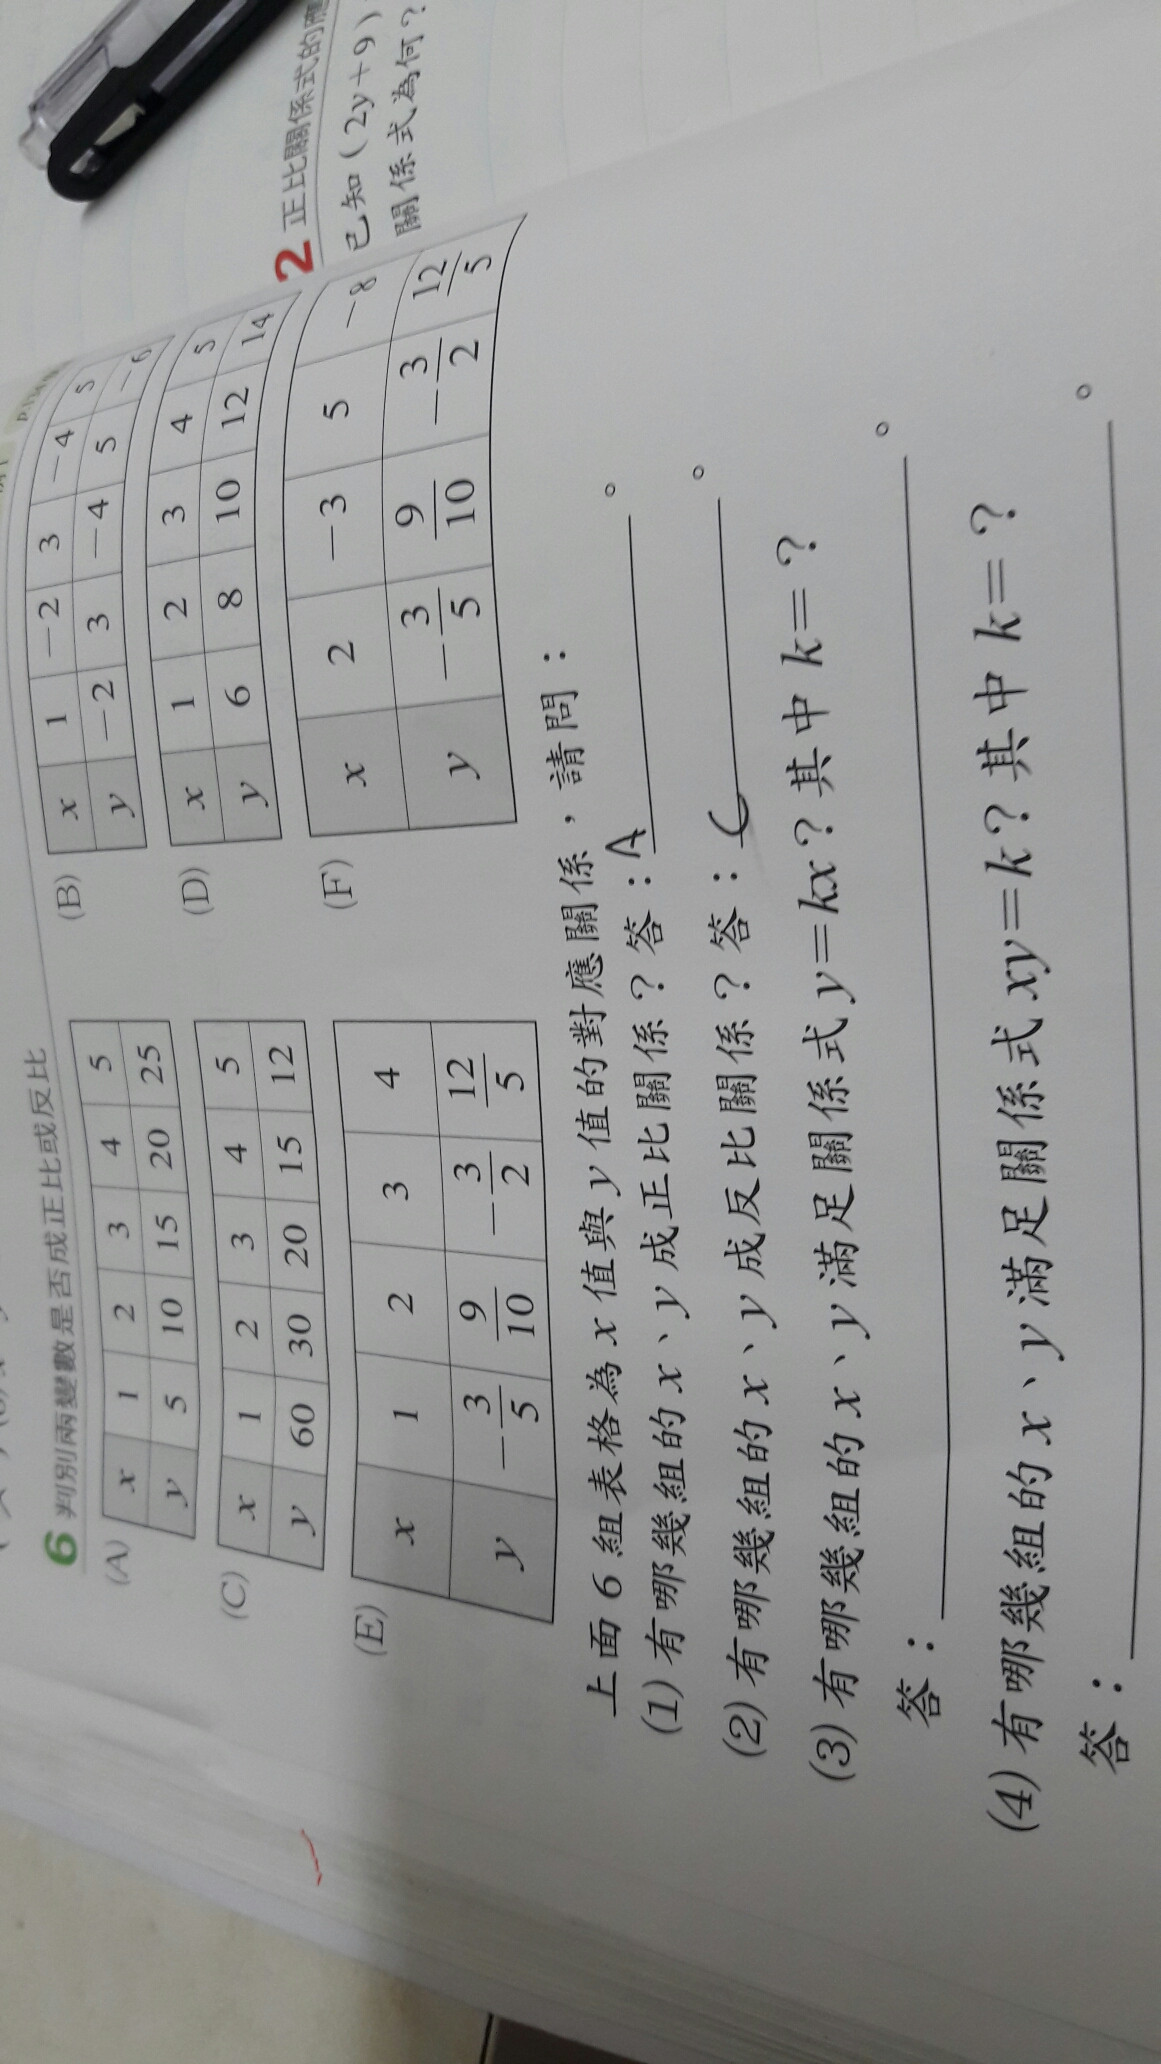 6 判別兩變數是否成正比或反比
(A)
x 1 2 3 4 5
y 5 10 15 20 25
(B)
x 1 −2 3 −4 5
y −2 3 −4 5 −6
(C)
x 1 2 3 4 5
y 60 30 20 15 12
(D)
x 1 2 3 4 5
y 6 8 10 12 14
(E)
x 1 2 3 4
y −3/5 9/10 −3/2 12/5
(F)
x 2 −3 5 −8
y −3/5 9/10 −3/2 12/5
上面 6 組表格為 x 值與 y 值的對應關係，請問：
(1) 有哪幾組的 x、y 成正比關係？答：A。
(2) 有哪幾組的 x、y 成反比關係？答：C。
(3) 有哪幾組的 x、y 滿足關係式 y=kx？其中 k=？
答：。
(4) 有哪幾組的 x、y 滿足關係式 xy=k？其中 k=？
答：。
2 正比關係式的應
已知 (2y+9)
關係式為何？